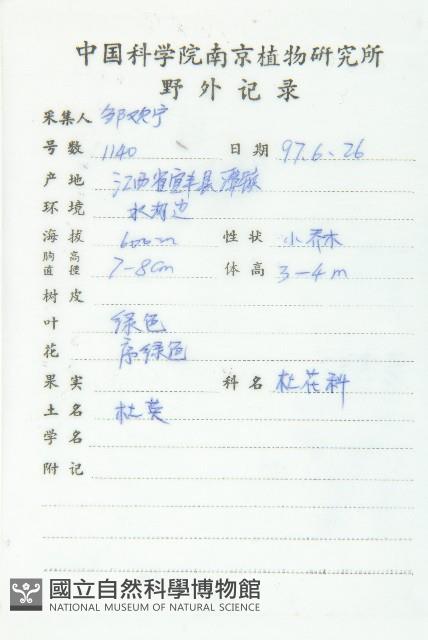 中国科学院南京植物研究所
野外记录
采集人 邹欢宁
号数 1140 日期 97.6.26
产地 江西省宜丰县潭版
环境 水沟边
海拔 600m 性状 小乔木
胸高直径 7-8cm 体高 3-4m
树皮
叶 绿色
花 序绿色
果实 科名 杜花科
土名 杜英
学名
附记
國立自然科學博物館
NATIONAL MUSEUM OF NATURAL SCIENCE